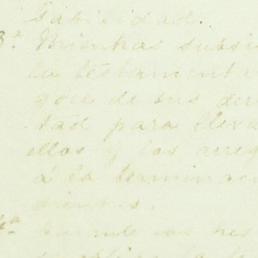 sabilidad.
3ª Mientras subsi
la testament
goce de sus der
tad para lleva
ellos y los arreg
á la terminac
dientes.
4ª